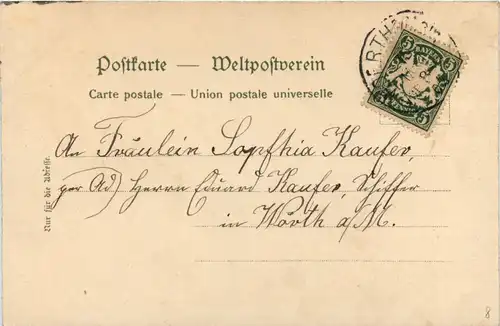 Postkarte — Weltpostverein
Carte postale — Union postale universelle
5 BAYERN 5
5 PFENNIG 5
An Fräulein Sopfhia Kaufer,
per Ad) Herrn Eduard Kaufer, Schiffer
in Wörth a/M.
Nur für die Adresse.
8